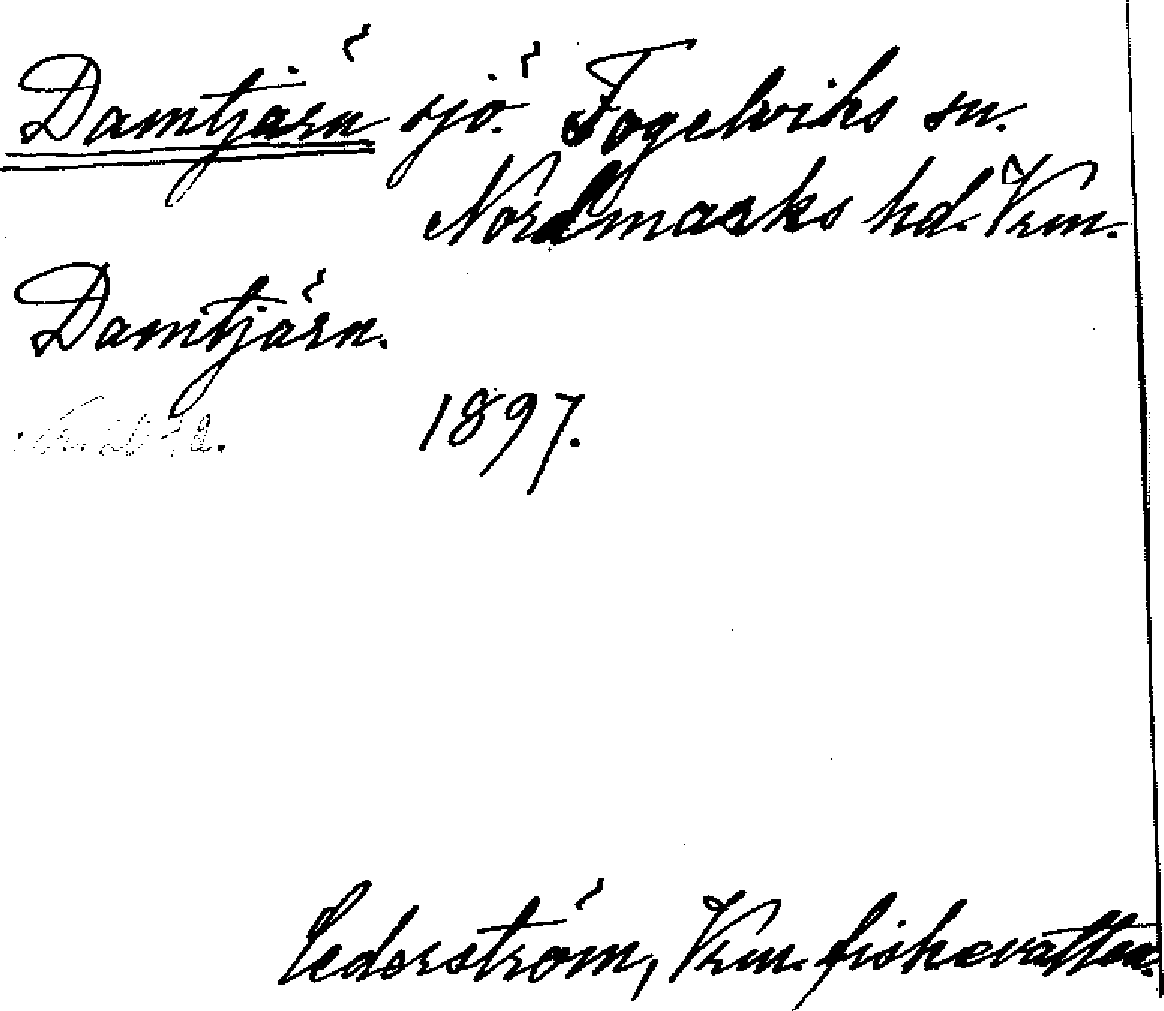 Damtjärn sjö. Fogelviks sn.
Nordmarks hd. Vrm.
Damtjärn.
1897.
Cederström, Vrm. fiskevatten.